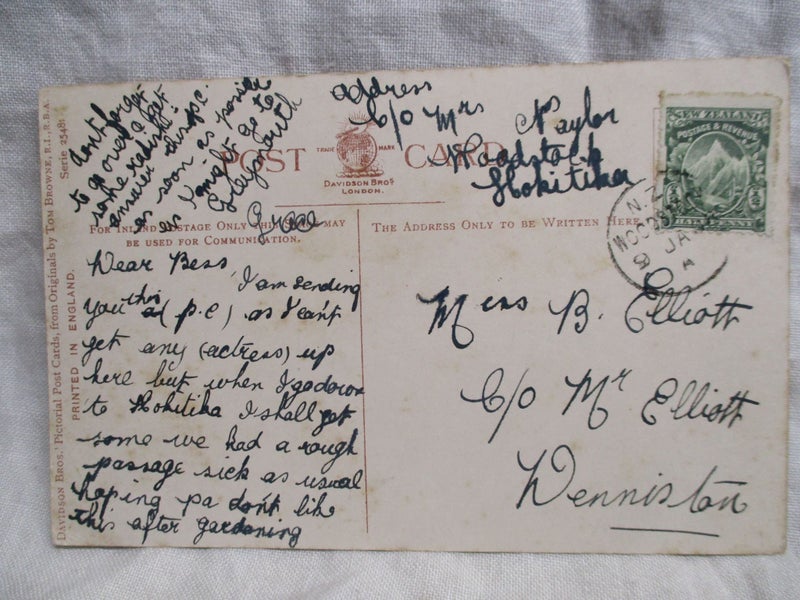 dont forget
to go over & get
some
answer this p.c.
as soon as
as I might go to
Greymouth
Grace
address
C/o Mrs Naylor
Woodstock
Hokitika
POST CARD
TRADE MARK
DAVIDSON BROS.
LONDON.
NEW ZEALAND
POSTAGE & REVENUE
N.Z.
WOODS
9 JA
A
FOR INLAND POSTAGE ONLY THIS SPACE MAY
BE USED FOR COMMUNICATION.
THE ADDRESS ONLY TO BE WRITTEN HERE
Dear Bess,
I am sending
you this (p.c) as I cant
get any (actress) up
here but when I go down
to Hokitika I shall get
some we had a rough
passage sick as usual
hoping pa dont like
this after gardening
Miss B. Elliott
C/o Mr Elliott
Denniston
DAVIDSON BROS.' Pictorial Post Cards, from Originals by TOM BROWNE, R.I., R.B.A.
Serie 2548
PRINTED IN ENGLAND.